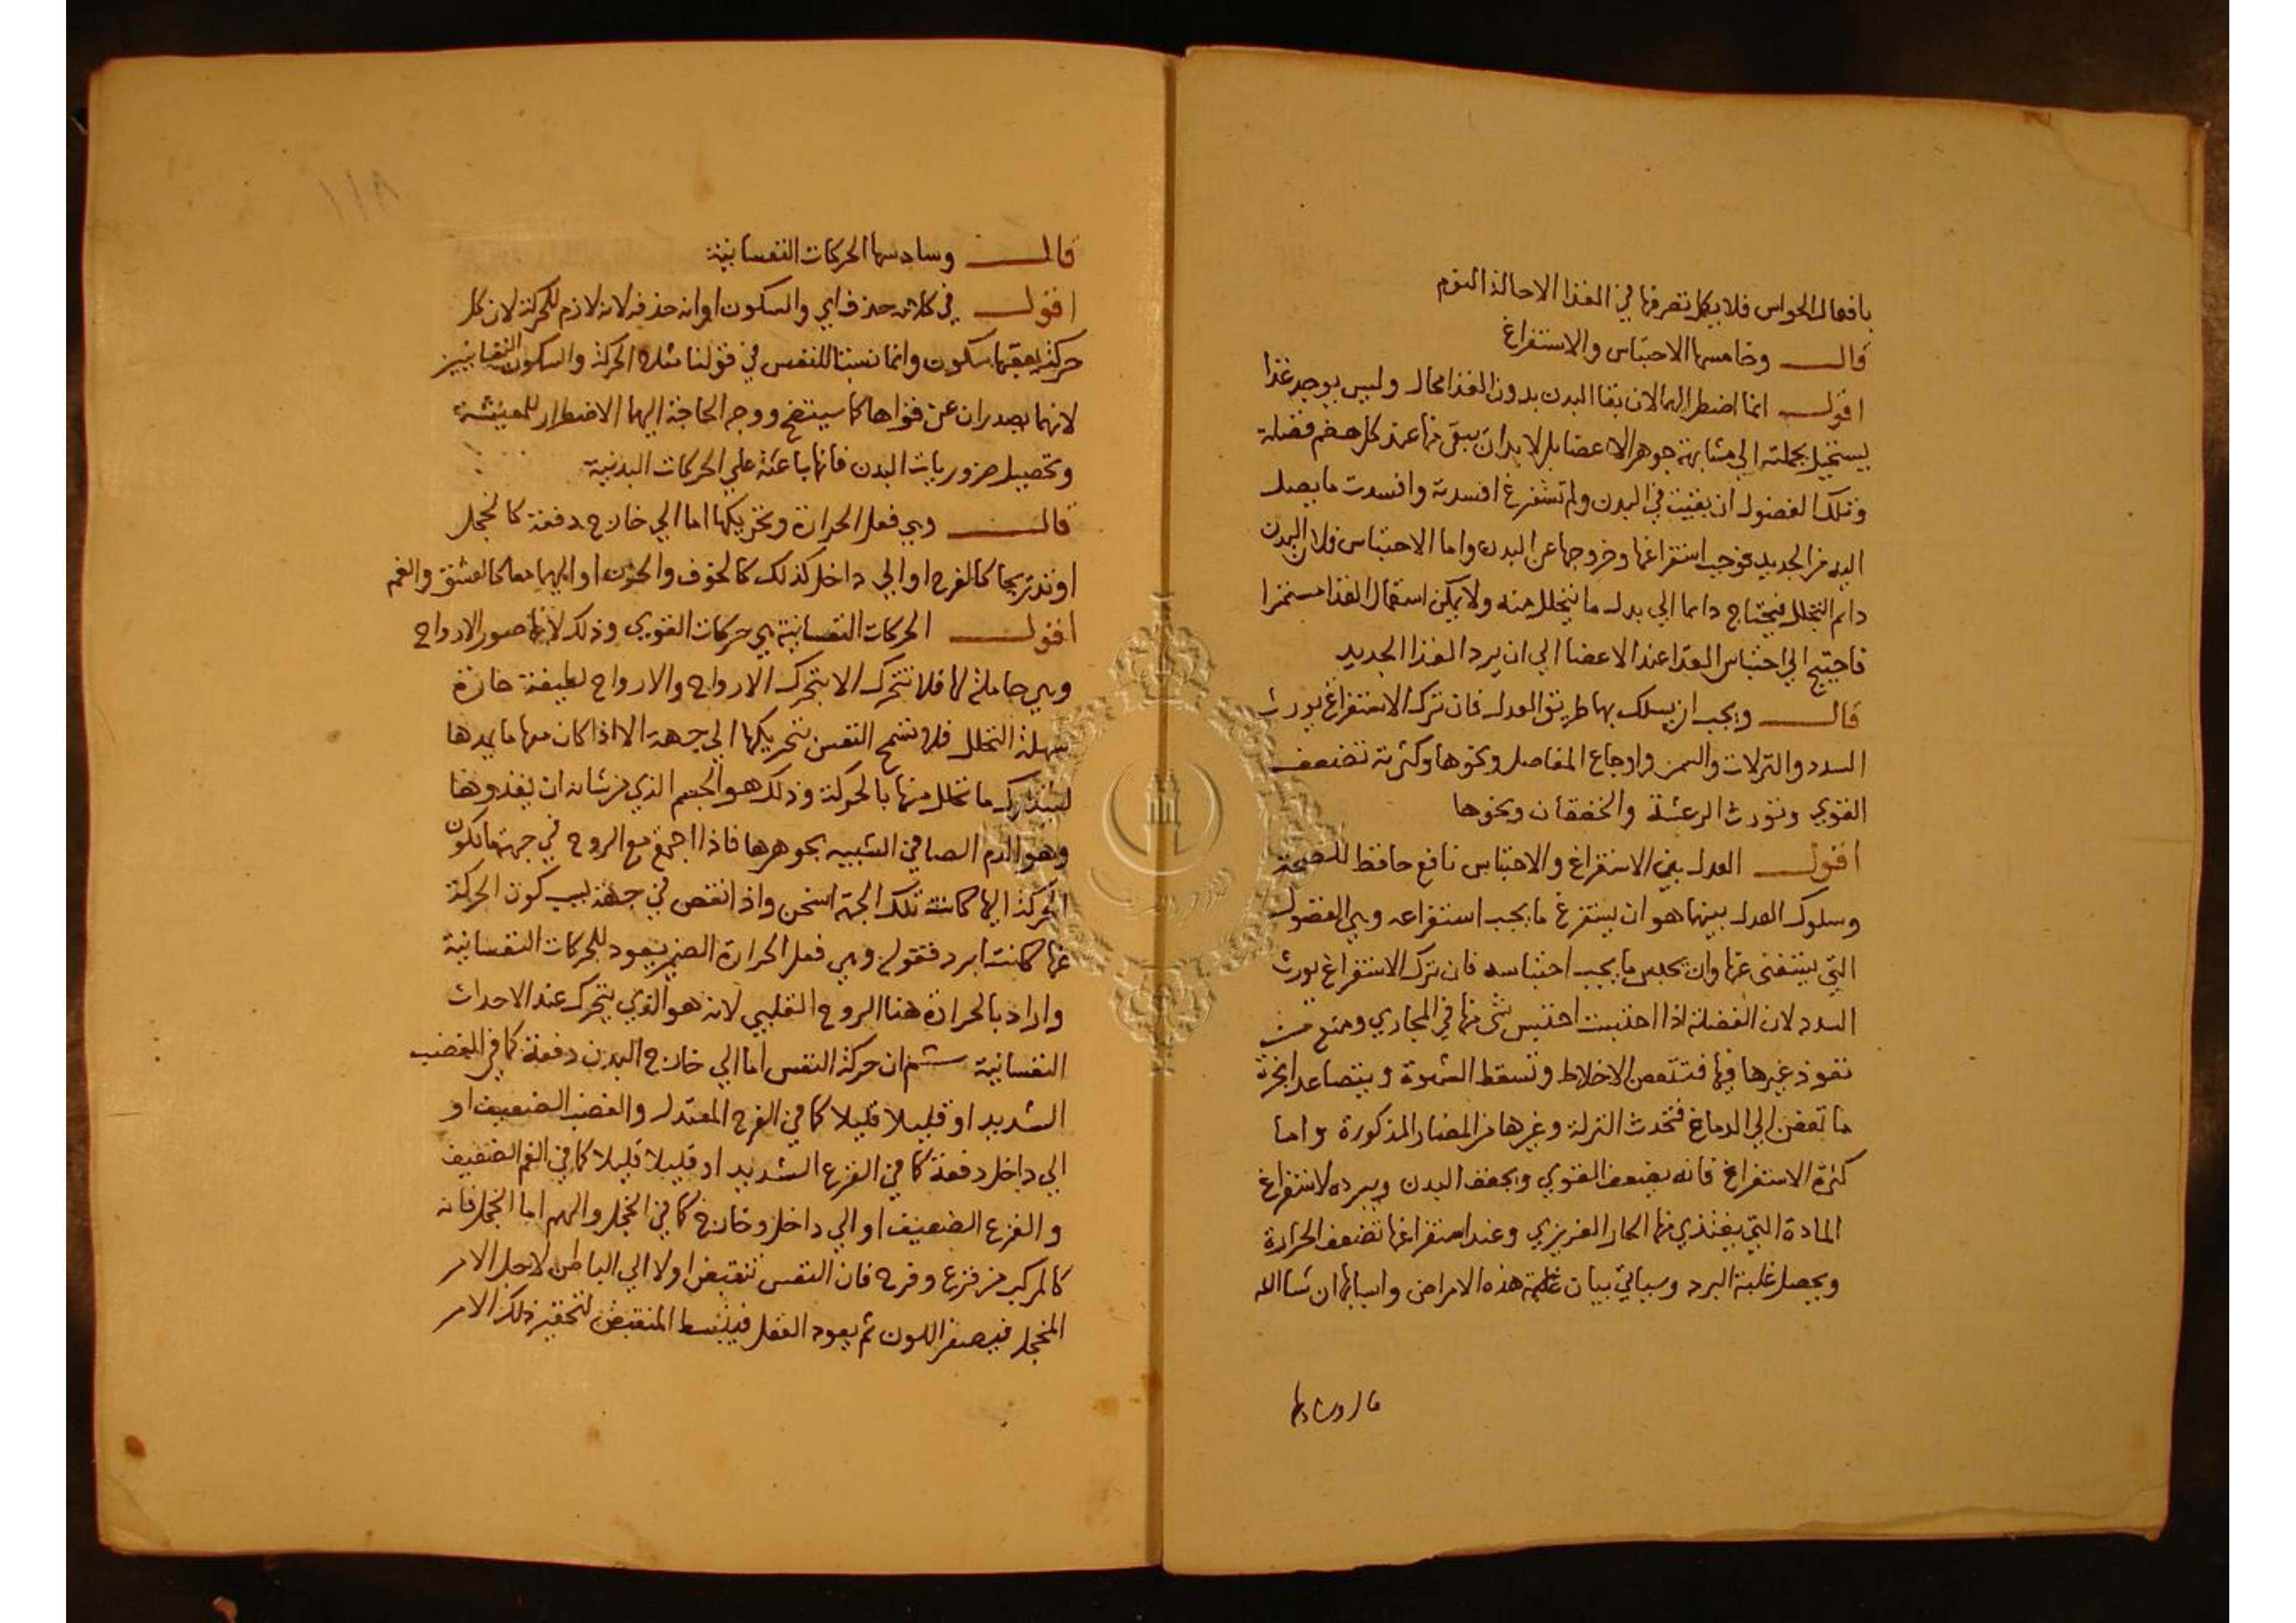 بافعال الحواس فلا يكمل تصرفها في الغذا الا حالة النوم
قال وخامسها الاحتباس والاستفراغ
اقول انما اضطر اليهما لان بقا البدن بدون الغذا محال وليس يوجد غذا
يستحيل بجملته الي مشابهة جوهر الاعضا بل لا بد ان يبقي منها عند كل هضم فضلة
وتلك الفضول ان بقيت في البدن ولم تستفرغ افسدته وافسدت ما يصل
اليه من الجديد فوجب استفراغها وخروجها عن البدن واما الاحتباس فلان البدن
دايم التحلل فيحتاج دايما الي بدل ما يتحلل منه ولا يمكن استعمال الغذا مستمرا
فاحتيج الي احتباس الغذا عند الاعضا الي ان يرد الغذا الجديد
قال ويجب ان يسلك بها طريق العدل فان ترك الاستفراغ يورث
السدد والنزلات والسمن واوجاع المفاصل ونحوها وكثرته تضعف
القوي وتورث الرعشة والخفقان ونحوها
اقول العدل بين الاستفراغ والاحتباس نافع حافظ للصحة
وسلوك العدل بينهما هو ان يستفرغ ما يجب استفراغه وهي الفضول
التي يستغني عنها وان يحبس ما يجب احتباسه فان ترك الاستفراغ يورث
السدد لان الفضلة اذا احتبست احتبس شي منها في المجاري ومنع من
نفوذ غيرها فيها فتتعفن الاخلاط وتسقط الشهوة ويتصاعد ابخرة
ما تعفن الي الدماغ فتحدث النزلة وغيرها من المضار المذكورة واما
كثرة الاستفراغ فانه يضعف القوي ويجفف البدن ويبرده لاستفراغ
المادة التي يغتذي منها الحار الغريزي وعند استفراغها تضعف الحرارة
ويحصل غلبة البرد وسياتي بيان هذه الامراض واسبابها ان شا الله
قال وسادسها
١١٨
قال وسادسها الحركات النفسانية
اقول في كلامه حذف اي والسكون او انه حذفه لانه لازم للحركة لان كل
حركة يعقبها سكون وانما نسبنا للنفس في قولنا هذه الحركة والسكون النفسانيين
لانهما يصدران عن قواها كما سيتضح ووجه الحاجة اليهما الاضطرار للمعيشة
وتحصيل ضروريات البدن فانها باعثة علي الحركات البدنية
قال وهي فعل الحرارة وتحريكها اما الي خارج دفعة كالخجل
او تدريجا كالفرح او الي داخل كذلك كالخوف والحزن او اليهما معا كالعشق والغم
اقول الحركات النفسانية هي حركات القوي وذلك لانها صور الارواح
وهي حاملة لها فلا تتحرك الا بتحرك الارواح والارواح لطيفة حارة
سهلة التحلل فلا تسمح النفس بتحريكها الي جهة الا اذا كان معها ما يمدها
ليتدارك ما تحلل منها بالحركة وذلك هو الجسم الذي من شانه ان يغذوها
وهو الدم الصافي الشبيه بجوهرها فاذا اجتمع مع الروح في جهة ما تكون
الحركة اليها كانت تلك الجهة اسخن واذا نقص في جهة بسبب كون الحركة
عنها كانت ابرد فقوله وهي فعل الحرارة الضمير يعود للحركات النفسانية
واراد بالحرارة هنا الروح القلبي لانه هو الذي يتحرك عند الاحداث
النفسانية ثم ان حركة النفس اما الي خارج البدن دفعة كما في الغضب
الشديد او قليلا قليلا كما في الفرح المعتدل والغضب الضعيف او
الي داخل دفعة كما في الفزع الشديد او قليلا قليلا كما في الغم الضعيف
و الفزع الضعيف او الي داخل وخارج كما في الخجل والهم اما الخجل فانه
كالمركب من فزع وفرح فان النفس تنقبض اولا الي الباطن لاجل الامر
المخجل فيصفر اللون ثم يعود العقل فيبسط المنقبض لتحقير ذلك الامر